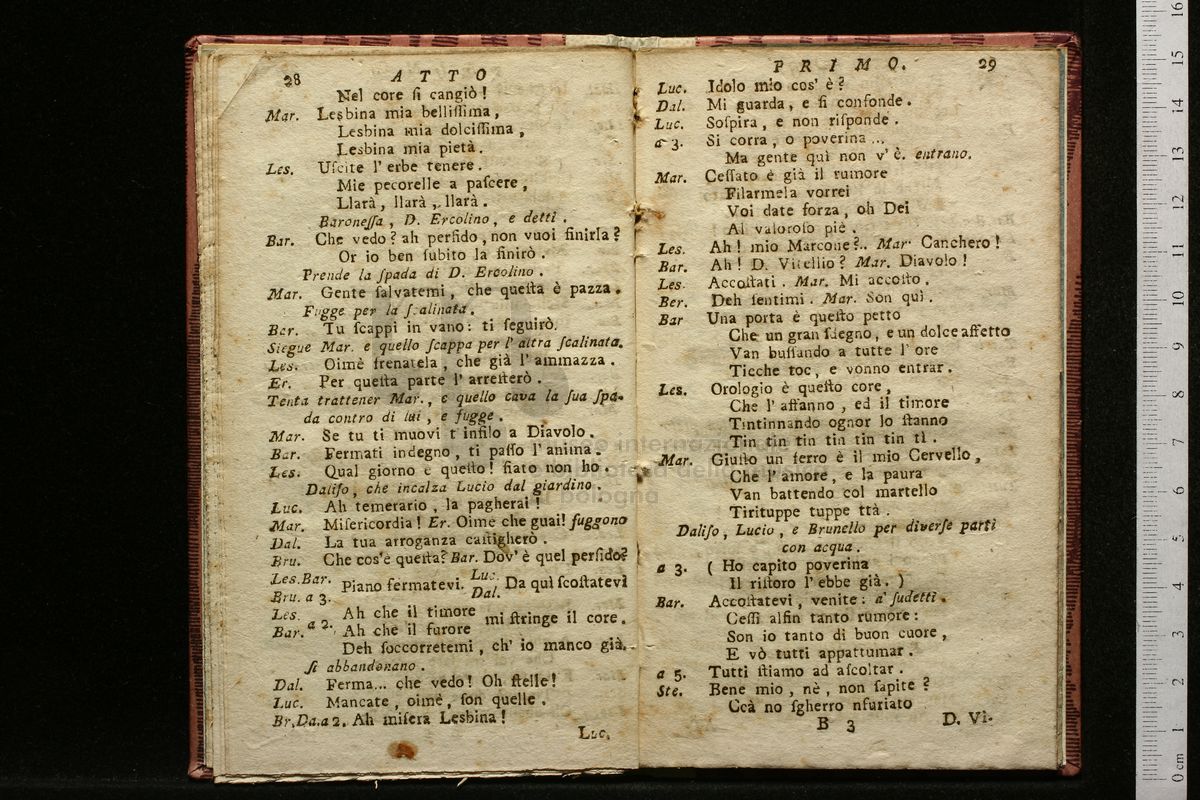 28 ATTO
Nel core ſi cangiò!
Mar. Lesbina mia belliſſima,
Lesbina mia dolciſſima,
Lesbina mia pietà.
Les. Uſcite l' erbe tenere.
Mie pecorelle a paſcere,
Llarà, llarà, llarà.
Baroneſſa, D. Ercolino, e detti.
Bar. Che vedo? ah perfido, non vuoi finirla?
Or io ben ſubito la finirò.
Prende la ſpada di D. Ercolino.
Mar. Gente ſalvatemi, che queſta è pazza.
Fugge per la ſcalinata.
Bar. Tu ſcappi in vano: ti ſeguirò.
Siegue Mar. e quello ſcappa per l' altra ſcalinata.
Les. Oimè frenatela, che già l' ammazza.
Er. Per queſta parte l' arreſterò.
Tenta trattener Mar., e quello cava la ſua ſpa-
da contro di lui, e fugge.
Mar. Se tu ti muovi t' infilo a Diavolo.
Bar. Fermati indegno, ti paſſo l' anima.
Les. Qual giorno è queſto! fiato non ho.
Daliſo, che incalza Lucio dal giardino.
Luc. Ah temerario, la pagherai!
Mar. Miſericordia! Er. Oimè che guai! fuggono
Dal. La tua arroganza caſtigherò.
Bru. Che cos'è queſta? Bar. Dov' è quel perfido?
Les. Bar. Bru. a 3. Piano fermatevi. Luc. Dal. Da quì ſcoſtatevi
Les. Ah che il timore
Bar. a 2. Ah che il furore mi ſtringe il core.
Deh ſoccorretemi, ch' io manco già.
ſi abbandonano.
Dal. Ferma... che vedo! Oh ſtelle!
Luc. Mancate, oimè, ſon quelle.
Br. Da. a 2. Ah miſera Lesbina!
Luc.
PRIMO. 29
Luc. Idolo mio cos' è?
Dal. Mi guarda, e ſi confonde.
Luc. Soſpira, e non riſponde.
a 3. Si corra, o poverina...
Ma gente quì non v' è. entrano.
Mar. Ceſſato è già il rumore
Filarmela vorrei
Voi date forza, oh Dei
Al valoroſo piè.
Les. Ah! mio Marcone?.. Mar. Canchero!
Bar. Ah! D. Vitellio? Mar. Diavolo!
Les. Accoſtati. Mar. Mi accoſto.
Ber. Deh ſentimi. Mar. Son quì.
Bar Una porta è queſto petto
Che un gran ſdegno, e un dolce affetto
Van buſſando a tutte l' ore
Ticche toc, e vonno entrar.
Les. Orologio è queſto core,
Che l' affanno, ed il timore
Tintinnando ognor lo ſtanno
Tin tin tin tin tin tin tì.
Mar. Giuſto un ferro è il mio Cervello,
Che l' amore, e la paura
Van battendo col martello
Tirituppe tuppe ttà.
Daliſo, Lucio, e Brunello per diverſe parti
con acqua.
a 3. ( Ho capito poverina
Il riſtoro l' ebbe già. )
Bar. Accoſtatevi, venite: a' ſudetti.
Ceſſi alfin tanto rumore:
Son io tanto di buon cuore,
E vò tutti appattumar.
a 5. Tutti ſtiamo ad aſcoltar.
Ste. Bene mio, nè, non ſapite?
Ccà no ſgherro nfuriato
B 3 D. Vi-